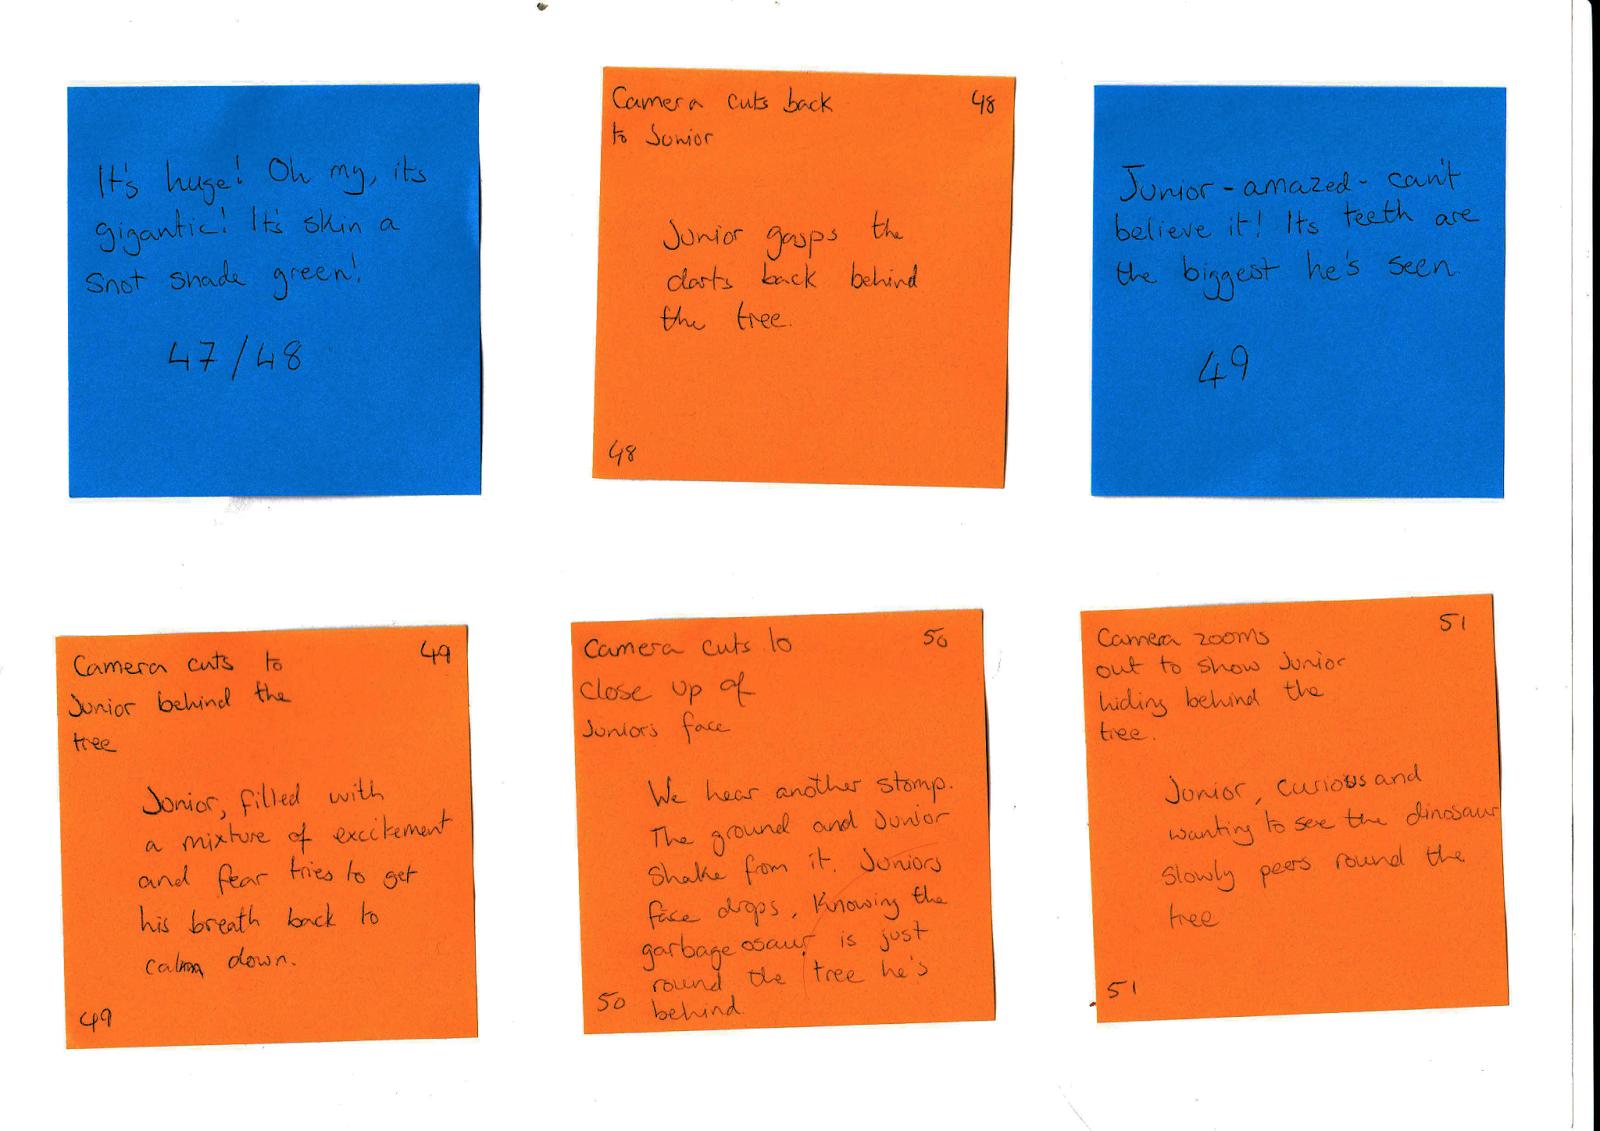 It's huge! Oh my, its
gigantic! It's skin a
snot shade green!
47/48
Camera cuts back
to Junior
48
Junior gasps the
darts back behind
the tree.
48
Junior - amazed - can't
believe it! Its teeth are
the biggest he's seen.
49
Camera cuts to
Junior behind the
tree
49
Junior, filled with
a mixture of excitement
and fear tries to get
his breath back to
calm down.
49
Camera cuts to
close up of
Juniors face
50
We hear another stomp.
The ground and Junior
shake from it. Juniors
face drops. Knowing the
garbage osaur is just
round the tree he's
behind.
50
Camera zooms
out to show Junior
hiding behind the
tree.
51
Junior, curious and
wanting to see the dinosaur
slowly peers round the
tree
51